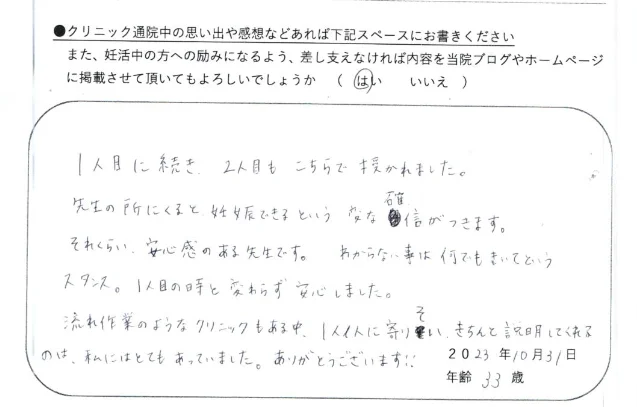 ●クリニック通院中の思い出や感想などあれば下記スペースにお書きください
また、妊活中の方への励みになるよう、差し支えなければ内容を当院ブログやホームページ
に掲載させて頂いてもよろしいでしょうか （ はい いいえ ）
1人目に続き、2人目も こちらで 授かれました。
先生の所にくると、妊娠できるという 変な 確信がつきます。
それくらい、安心感のある先生です。 わからない事は何でもきいてという
スタンス。1人目の時と変わらず安心しました。
流れ作業のようなクリニックもある中、1人1人に寄りそい、きちんと説明してくれる
のは、私にはとてもあっていました。ありがとうございます!!
2023年10月31日
年齢 33 歳